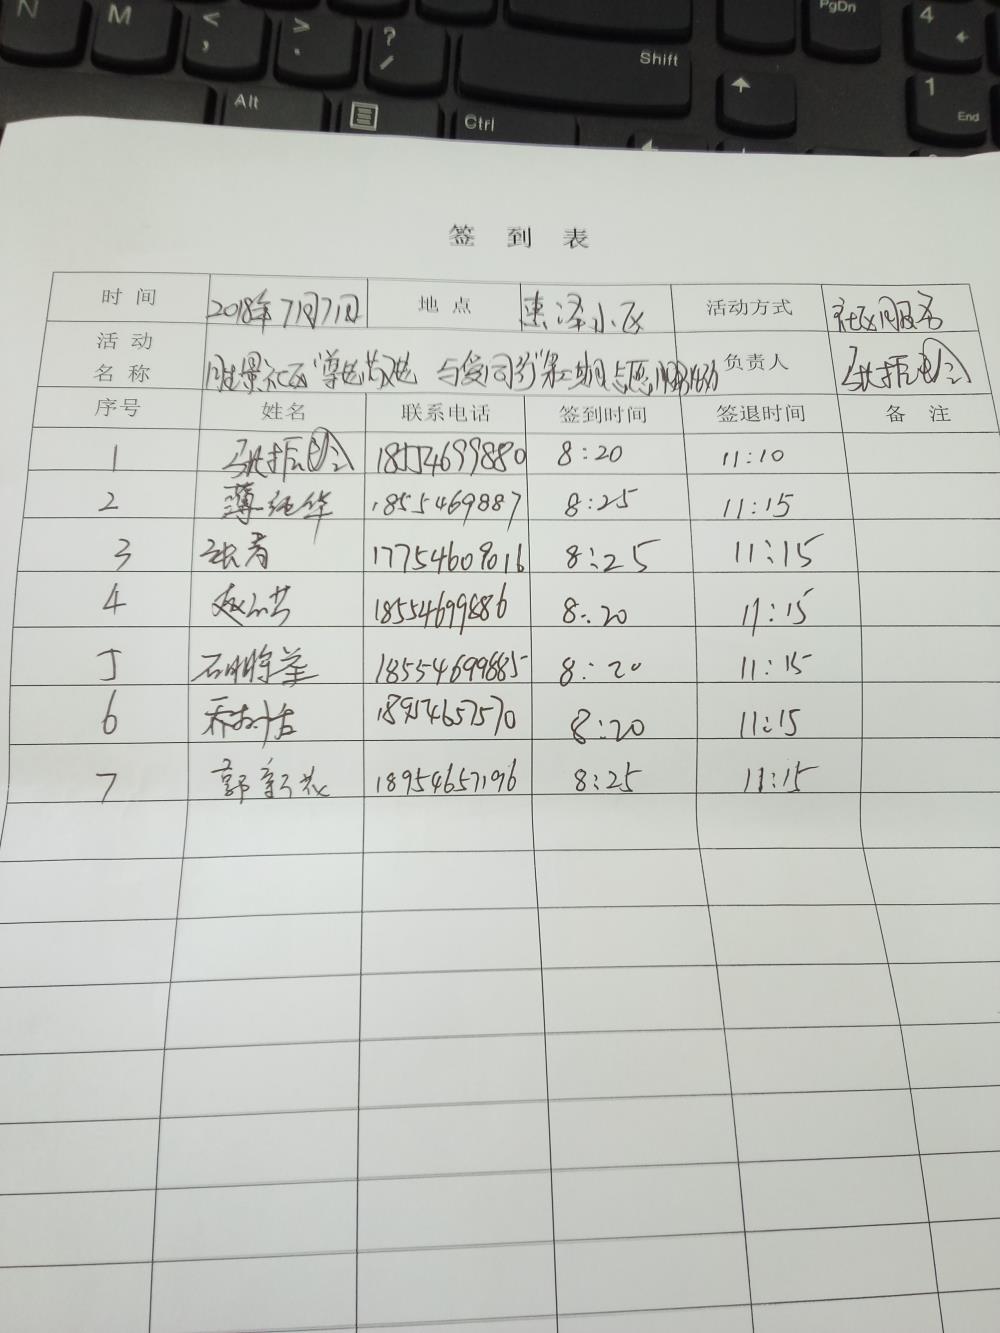 N M < , > . ? / Shift PgDn 4
Alt Ctrl 1 End
签 到 表
时 间 2018年7月7日 地 点 惠泽小区 活动方式 社区服务
活 动
名 称 胜景社区"尊老敬老 与爱同行"第二期志愿服务活动 负责人
序号 姓名 联系电话 签到时间 签退时间 备 注
1 18554699880 8:20 11:10
2 薄纯华 1855469887 8:25 11:15
3 张青 17754609016 8:25 11:15
4 18554699886 8:20 11:15
5 18554699885 8:20 11:15
6 18954657570 8:20 11:15
7 郭新 18954657196 8:25 11:15